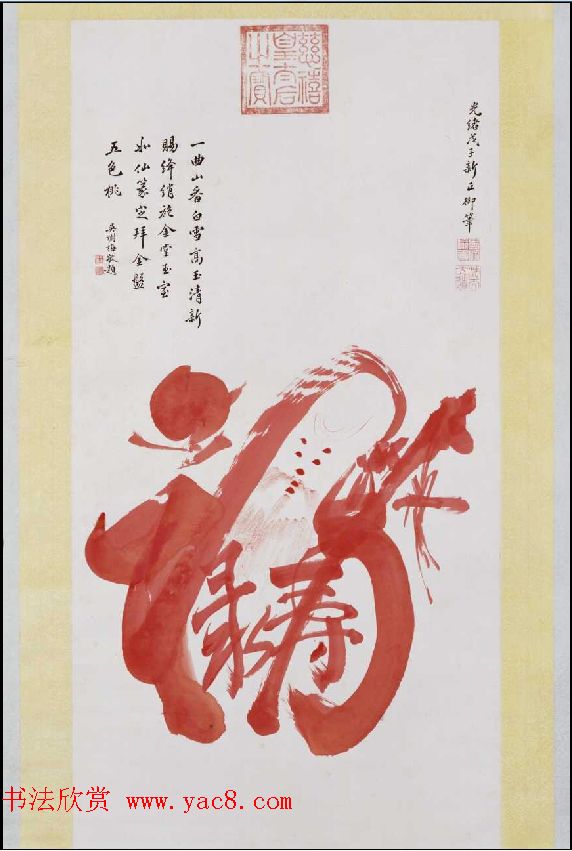 慈禧
皇太后
之寶
光緒戊子新正御筆
一曲山香白雪高玉清新
賜絳綃袍金堂玉室
如仙篆定拜金盤
五色桃
吳樹梅敬題
壽
书法欣赏 www.yac8.com